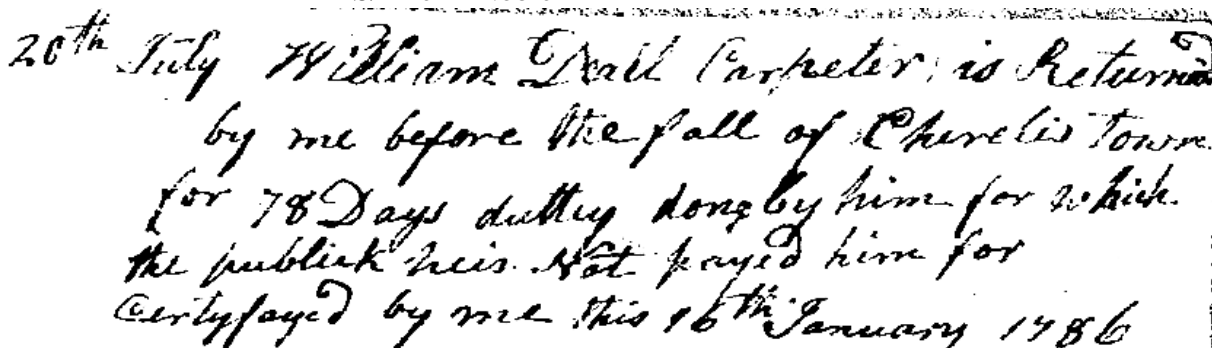 20th July William Dall Carpeter is Returned
by me before the fall of Chirelis Town
for 78 Days duttey done by him for which
the publick heis Not payed him for
Certyfayed by me this 16th January 1786